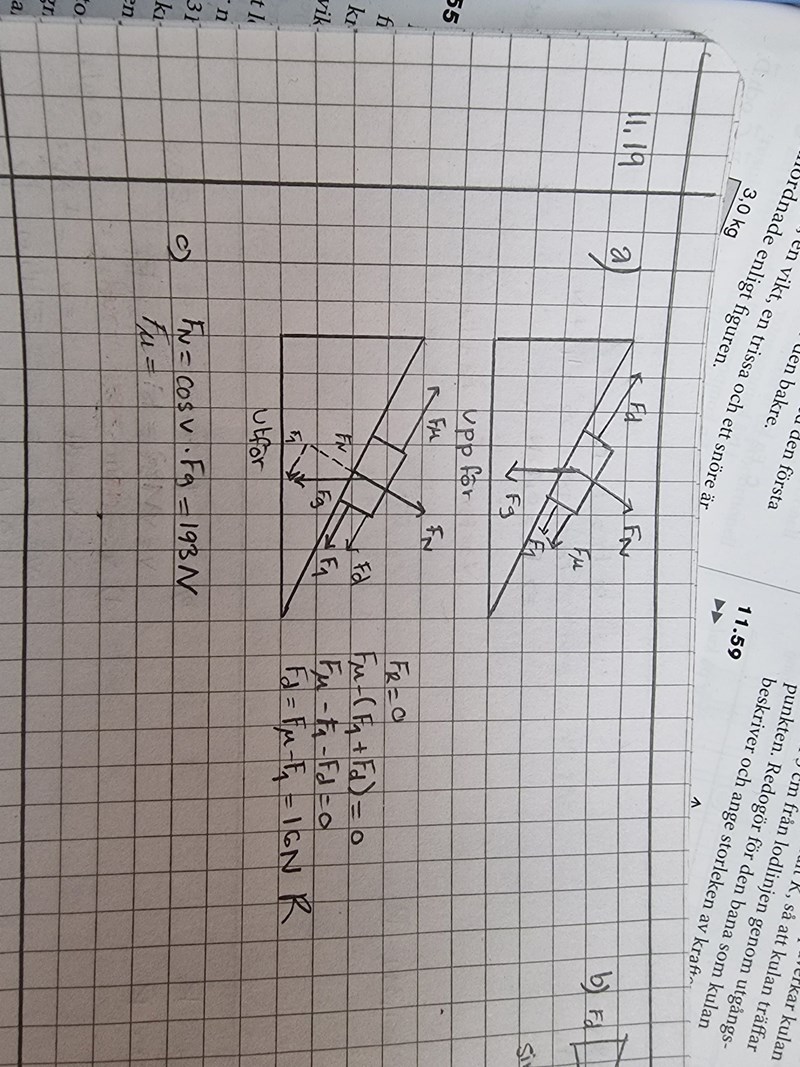 3,0 kg
ordnade enligt figuren.
, en vikt, en trissa och ett snöre är
den bakre.
den första
11.59
punkten. Redogör för den bana som kulan
beskriver och ange storleken av
cm från lodlinjen genom utgångs-
så att kulan träffar
kulan
55
11.19
a)
Fd
FN
Fμ
F1
Fg
uppför
Fμ
FN
FN
Fd
F1
Fg
F1
utför
FR = 0
Fμ - (F1 + Fd) = 0
Fμ - F1 - Fd = 0
Fd = Fμ - F1 = 16N R
b) Fd
c)
FN = cos v · Fg = 193N
Fμ =